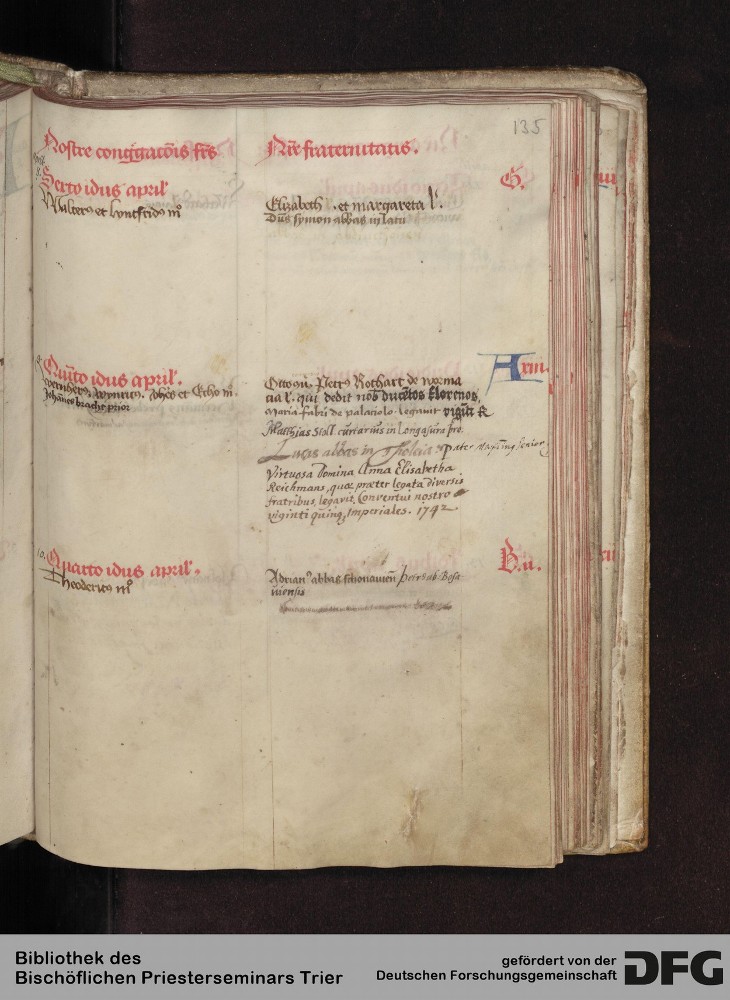 135
Nostre conggacois frs
Nre fraternitatis.
8.
Sexto idus april
G.
Walterus et lyntfridus m°
Elizabeth . et margareta l.
Dns symon abbas in lacu
9.
Quito idus april.
A xiii.
wernherus, Wynricus, Johes et Echo m.
Johannes brache prior
Otto m. Petrus Rothart de worma
cia l. qui dedit nob ducetos florenos.
Maria fabri de palaciolo legavit viginti
Matthias Stoll curiarius in Longasura pr.
Lucas abbas in Tholeia
pater senior
Virtuosa Domina Anna Elisabetha
Reichmans, quæ præter legata diversis
fratribus, legavit Conventui nostro
viginti quinq, Imperiales. 1742
10.
Quarto idus april.
B. ii.
Theodericus m°
Adrianus abbas schonauien Petrus ab. Bosa
uiensis
Bibliothek des
Bischöflichen Priesterseminars Trier
gefördert von der
Deutschen Forschungsgemeinschaft
DFG